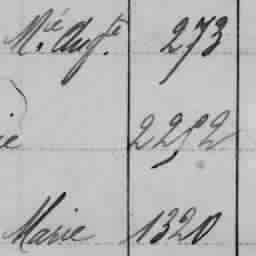 Mié Augte. 273
ie 2252
Marie 1320